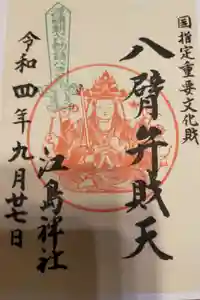 国指定重要文化財
八臂弁財天
江島神社
令和四年九月廿七日